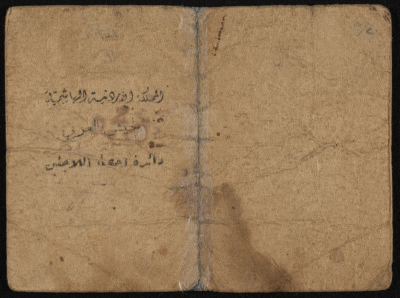 المملكة الاردنية الهاشمية
الجيش العربي
دائرة احصاء اللاجئين